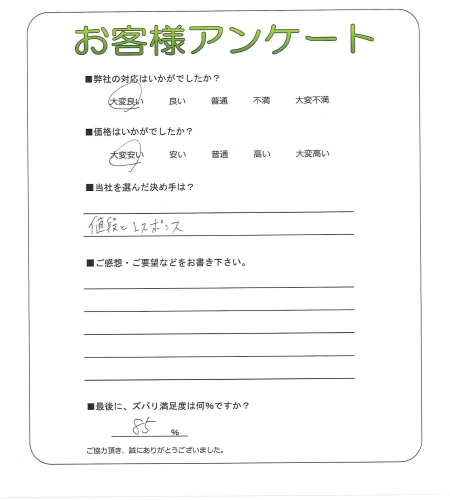 お客様アンケート
■弊社の対応はいかがでしたか?
大変良い 良い 普通 不満 大変不満
■価格はいかがでしたか?
大変安い 安い 普通 高い 大変高い
■当社を選んだ決め手は?
値段とレスポンス
■ご感想・ご要望などをお書き下さい。
■最後に、ズバリ満足度は何%ですか?
85 %
ご協力頂き、誠にありがとうございました。